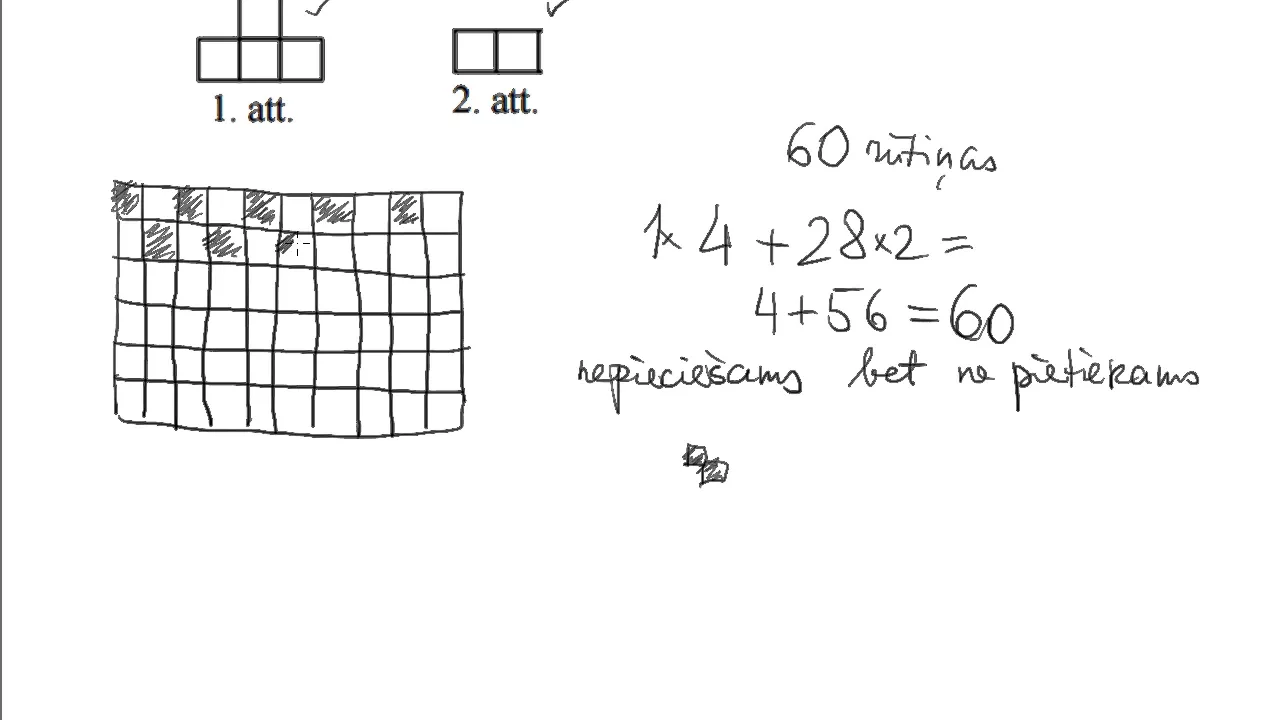 1. att.
2. att.
60 rūtiņas
1× 4 + 28×2 =
4 + 56 = 60
nepieciešams bet ne pietiekams